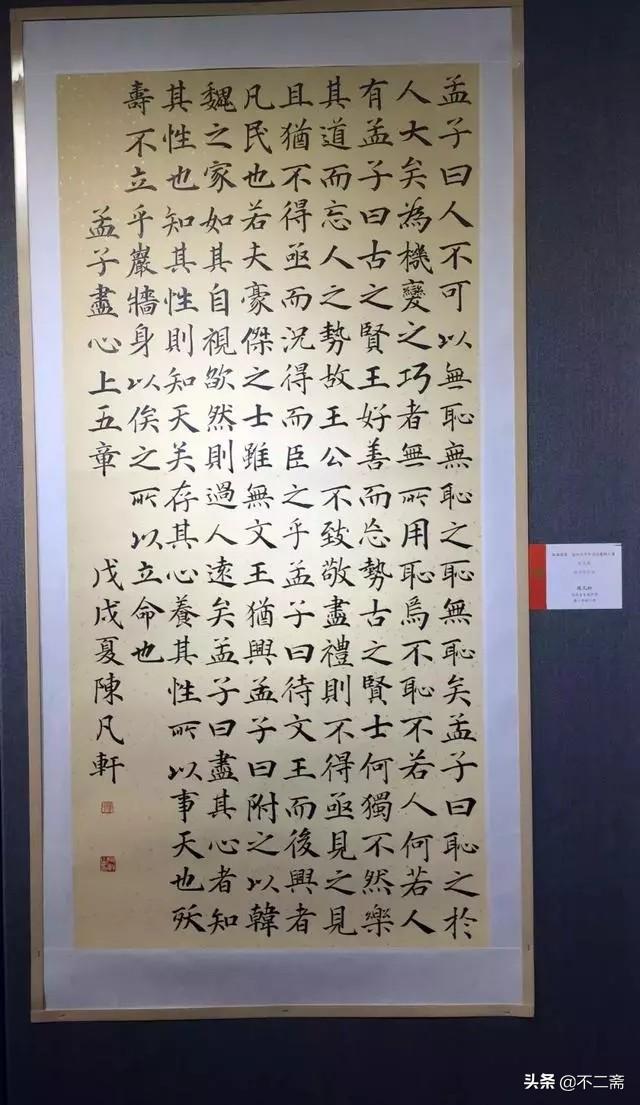 孟子曰人不可以無恥無恥之恥無恥矣孟子曰恥之於
人大矣為機變之巧者無所用恥焉不恥不若人何若人
有孟子曰古之賢王好善而忘勢古之賢士何獨不然樂
其道而忘人之勢故王公不致敬盡禮則不得亟見之見
且猶不得亟而況得而臣之乎孟子曰待文王而後興者
凡民也若夫豪傑之士雖無文王猶興孟子曰附之以韓
魏之家如其自視欿然則過人遠矣孟子曰盡其心者知
其性也知其性則知天矣存其心養其性所以事天也殀
壽不立乎巖牆身以俟之所以立命也
孟子盡心上五章 戊戌夏陳凡軒
头条 @不二斋